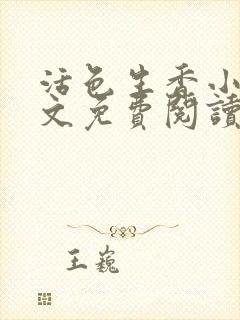 活色生香小
文免費閱讀
王巍